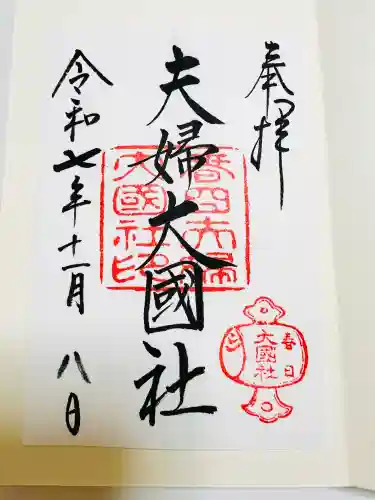 奉拝
夫婦大國社
令和七年十一月八日
春日夫婦
大國社印
春日
大國社